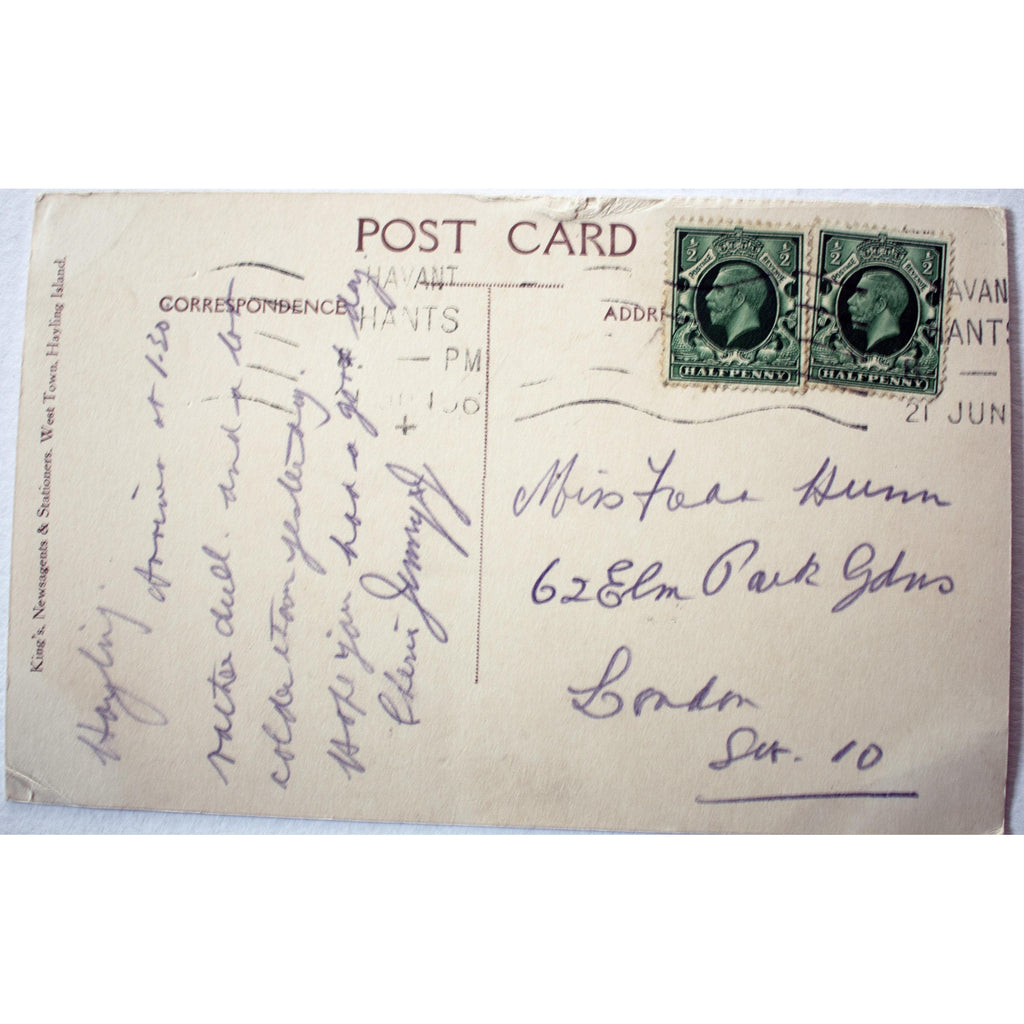 POST CARD
CORRESPONDENCE
ADDR
King's, Newsagents & Stationers, West Town, Hayling Island.
HAVANT
HANTS
— PM
+
AVAN
ANTS
21 JUN
½ ½
POSTAGE REVENUE
HALFPENNY
½ ½
POSTAGE REVENUE
HALFPENNY
Hayling
at 1.30
rather dull. and a bit
colder than yesterday.
Hope you had a good day
Cheerio
Miss Hunn
62 Elm Park Gdns
London
S.W. 10